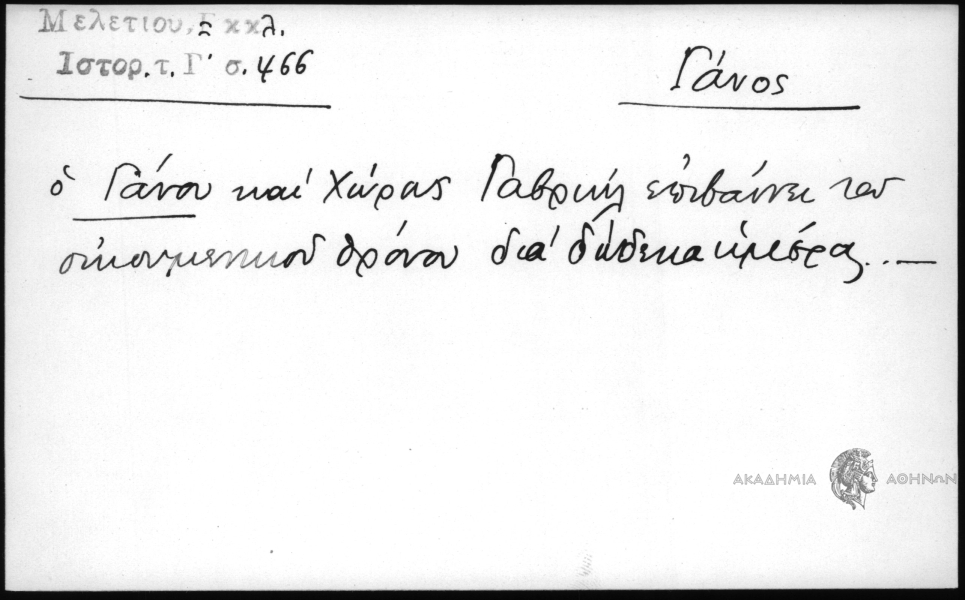 Μελετίου, Εκκλ.
Ιστορ. τ. Γ' σ. 466
Γάνος
ὁ Γάνου καί Χώρας Γαβριήλ ἐπιβαίνει τοῦ
οἰκουμενικοῦ θρόνου διά δώδεκα ἡμέρας...—
ΑΚΑΔΗΜΙΑ ΑΘΗΝΩΝ